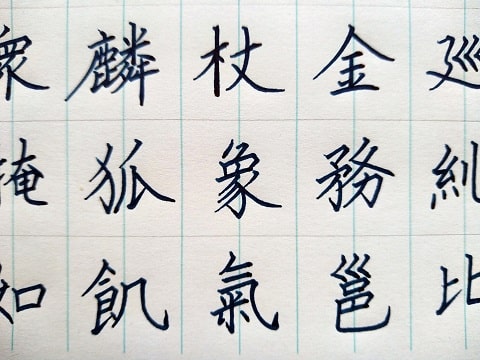 眾麟杖金廵
掩狐象務糾
如飢氣邕比